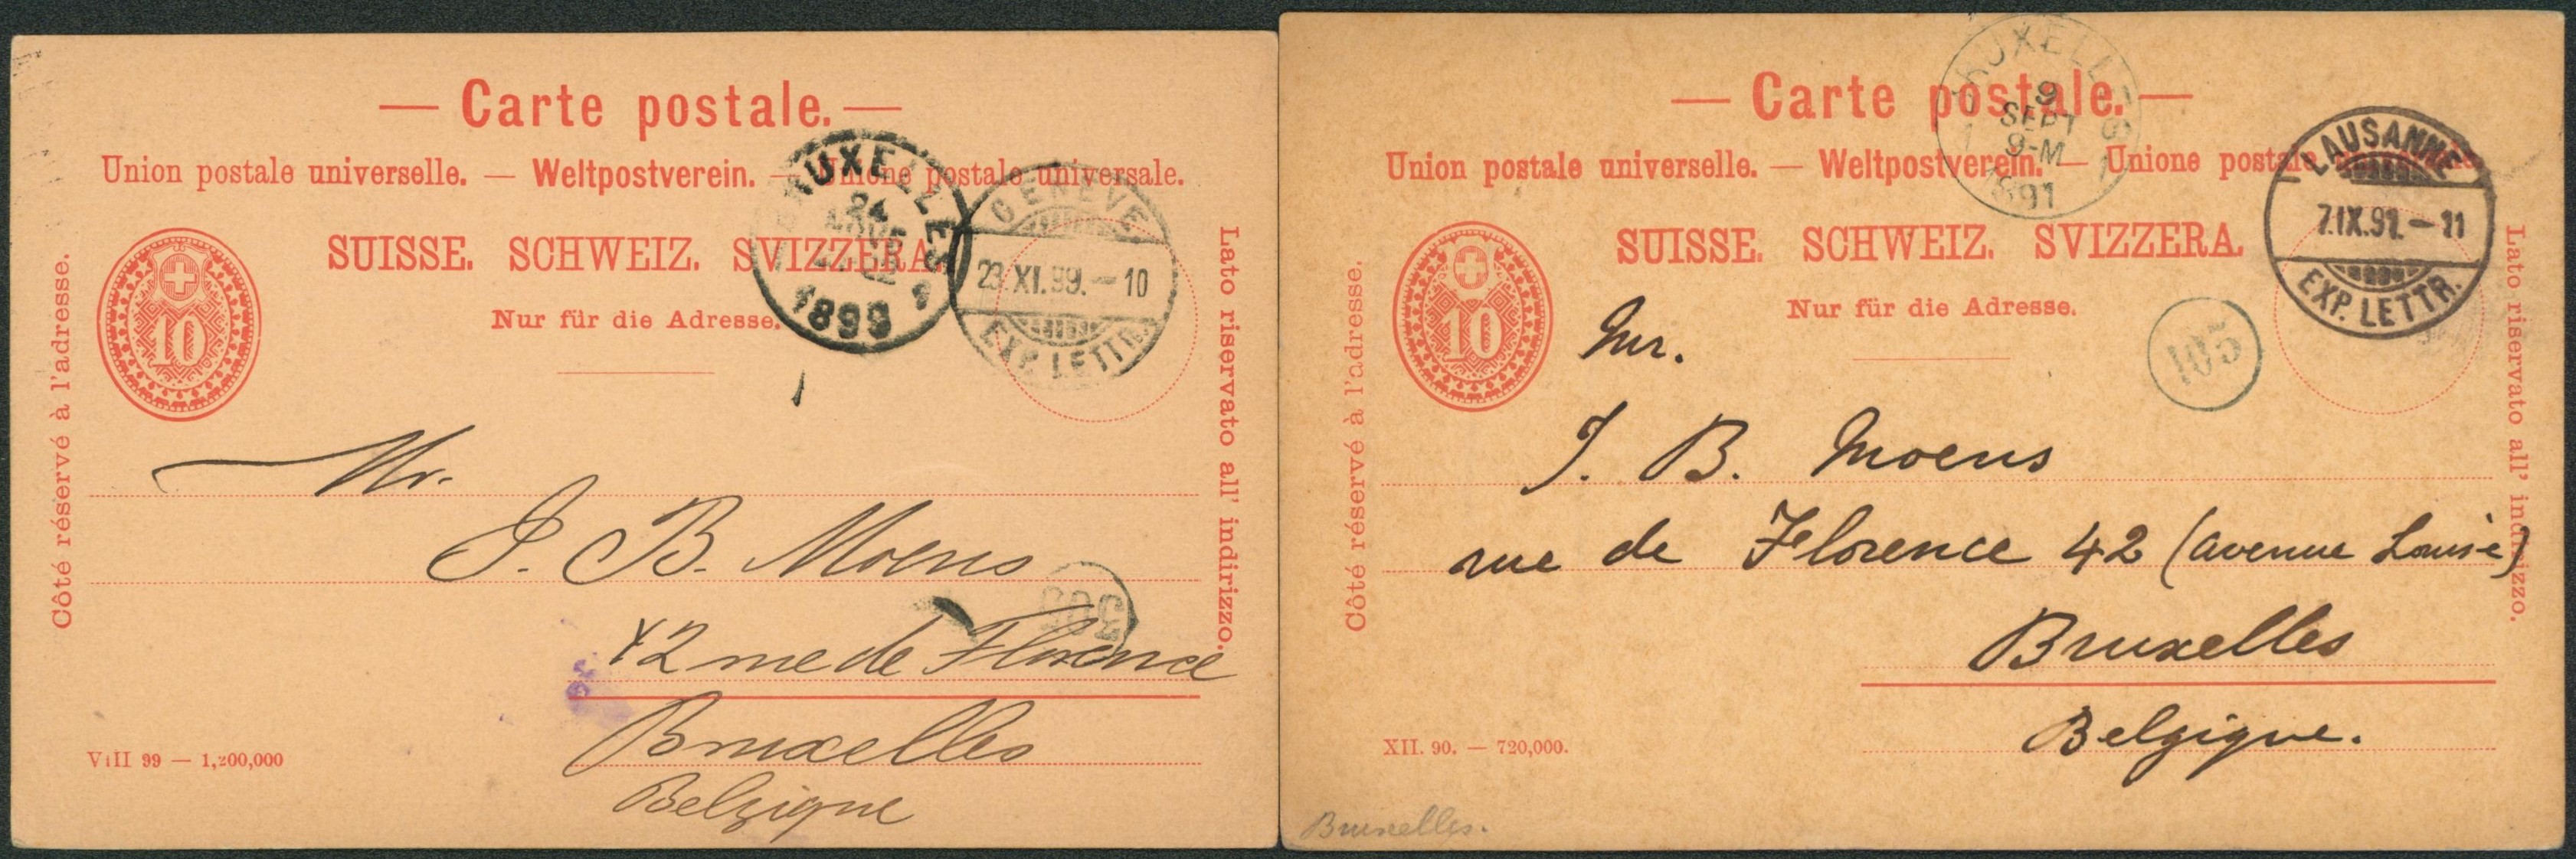 — Carte postale. —
Union postale universelle. — Weltpostverein. — Unione postale universale.
SUISSE. SCHWEIZ. SVIZZERA.
Nur für die Adresse.
Côté réservé à l'adresse.
Lato riservato all' indirizzo.
10
BRUXELLES
24
1899
GENÈVE
23.XI.99.—10
EXP. LETTR.
Mr.
J. B. Moens
42 rue de Florence
Bruxelles
Belgique
VIII 99 — 1,200,000
— Carte postale. —
Union postale universelle. — Weltpostverein. — Unione postale
SUISSE. SCHWEIZ. SVIZZERA.
Nur für die Adresse.
Côté réservé à l'adresse.
Lato riservato all' indirizzo.
10
BRUXELLES
9
SEPT
9-M
1891
LAUSANNE
7.IX.91.—11
EXP. LETTR.
105
Mr.
J. B. Moens
rue de Florence 42 (avenue Louise)
Bruxelles
Belgique.
XII. 90. — 720,000.
Bruxelles.